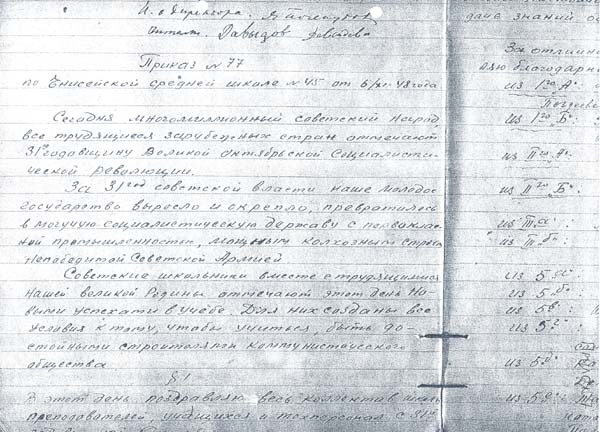 И. о директора.
Читал. Давыдов Давыдова
Приказ № 77
по Енисейской средней школе № 45 от 6/XI-48 года
Сегодня многомиллионный советский народ
все трудящиеся зарубежных стран отмечают
31ю годовщину Великой октябрьской социалисти-
ческой революции.
За 31 год советской власти наше молодое
государство выросло и окрепло, превратилось
в могучую социалистическую державу с первоклас
ной промышленностью, мощным колхозным строем
Непобедимой Советской Армией
Советские школьники вместе с трудящимися
нашей великой Родины отмечают этот день но-
выми успехами в учёбе. Для них созданы все
условия к тому, чтобы учиться, быть до-
стойными строителями коммунистического
общества
§ 1
В этот день поздравляю весь коллектив школы
преподавателей учащихся и техперсонал с 31й
даче знаний
За отлично
ляю благодарн
из 1го А.
из 1го Б.
из IIго А.
из IIго Б.
из III а:
из III б:
из 5 а:
из 5 б:
из 5 в:
из 5 г:
из 5 д:
из 5 е: